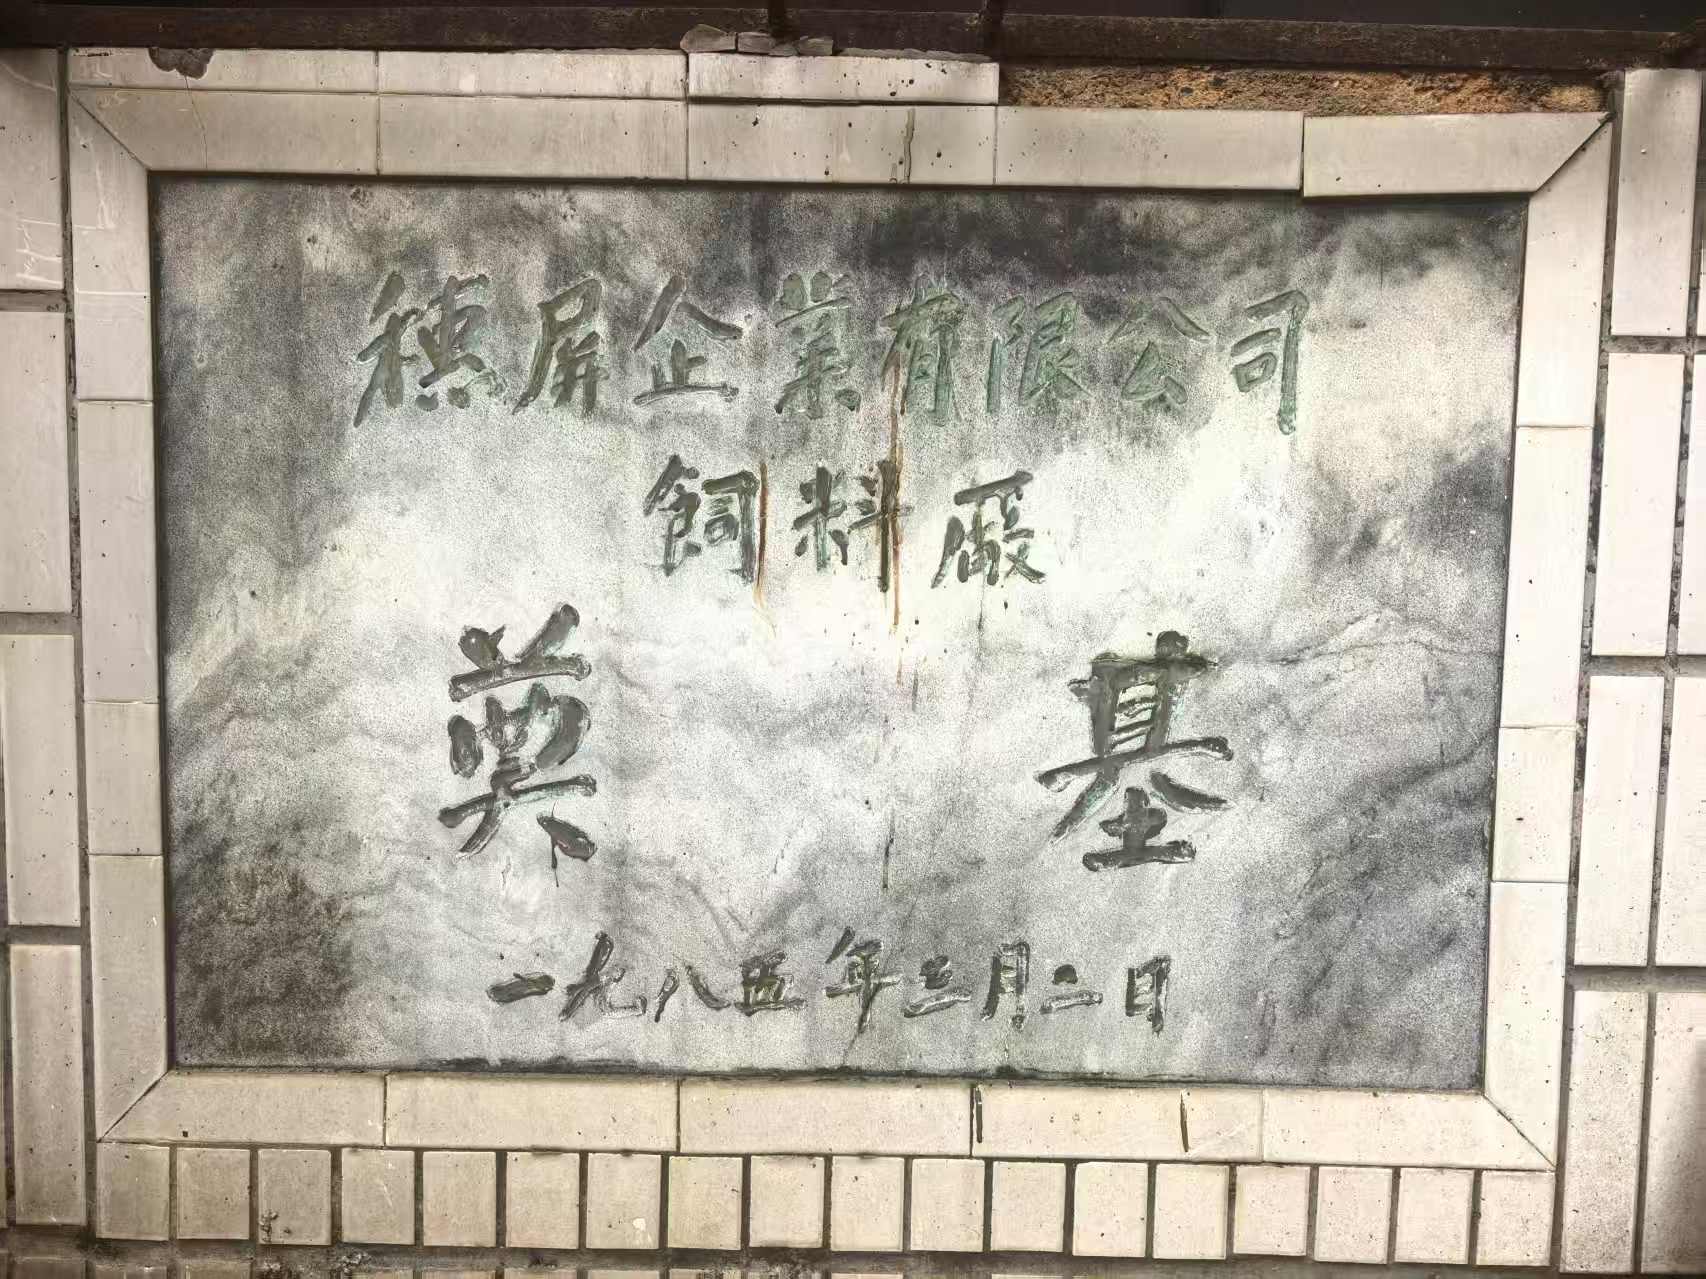 穗屏企業有限公司
飼料廠
奠基
一九八五年三月二日